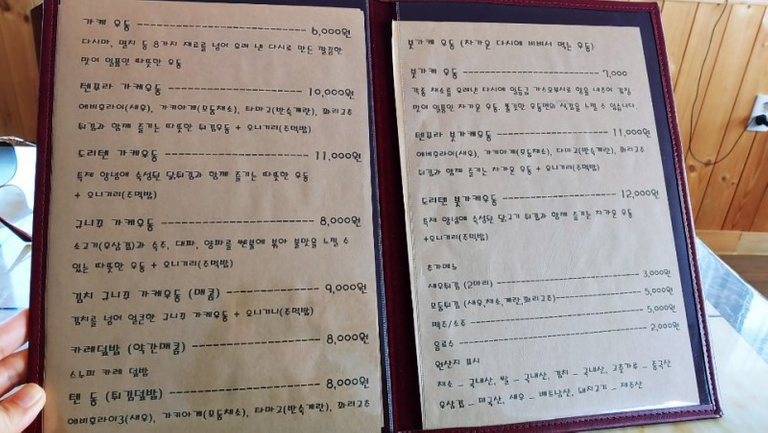 가케 우동 6,000원
다시마, 멸치 등 8가지 재료를 넣어 우려 낸 다시로 만든 깔끔한
맛이 일품인 따뜻한 우동
텐푸라 가케우동 10,000원
에비후라이(새우), 가키아게(모듬채소), 타마고(반숙계란), 꽈리고추
튀김과 함께 즐기는 따뜻한 튀김우동 + 오니기리(주먹밥)
토리텐 가케우동 11,000원
특제 양념에 숙성된 닭튀김과 함께 즐기는 따뜻한 우동
+ 오니기리(주먹밥)
규니꾸 가케우동 8,000원
소고기(우삼겹)과 숙주, 대파, 양파를 쎈불에 볶아 불맛을 느낄 수
있는 따뜻한 우동 + 오니기리(주먹밥)
김치 규니꾸 가케우동 (매콤) 9,000원
김치를 넣어 얼큰한 규니꾸 가케우동 + 오니기리(주먹밥)
카레덮밥 (약간매콤) 8,000원
스노피 카레 덮밥
텐 동 (튀김덮밥) 8,000원
에비후라이3(새우), 가키아게(모듬채소), 타마고(반숙계란), 꽈리고추
붓가케 우동 (차가운 다시에 비벼서 먹는 우동)
붓가케 우동 7,000
각종 채소를 우려낸 다시에 일등급 가쓰오부시로 향을 내주어 감칠
맛이 일품인 차가운 우동. 쫄깃한 우동면의 식감을 느낄 수 있습니다
텐푸라 붓가케우동 11,000원
에비후라이(새우), 가키아게(모듬채소), 타마고(반숙계란), 꽈리고추
튀김과 함께 즐기는 차가운 우동 + 오니기리(주먹밥)
토리텐 붓가케우동 12,000원
특제 양념에 숙성된 닭고기 튀김과 함께 즐기는 차가운 우동
+오니기리(주먹밥)
추가메뉴
새우튀김 (2마리) 3,000원
모둠튀김 (새우,채소,계란,꽈리고추) 5,000원
맥주/소주 5,000원
음료수 2,000원
원산지 표시
채소 _ 국내산, 쌀 _ 국내산, 김치 _ 국내산, 고춧가루 _ 중국산
우삼겹 _ 미국산, 새우 _ 베트남산, 돼지고기 _ 제주산